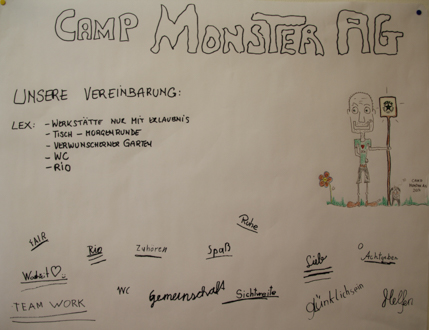 CAMP MONSTER AG
UNSERE VEREINBARUNG:
LEX: - WERKSTÄTTE NUR MIT ERLAUBNIS
- TISCH - MORGENRUNDE
- VERWUNSCHENER GARTEN
- WC
- RIO
Ruhe
FAIR
Rio
Zuhören
Spaß
Lieb
Achtgeben
Wahrheit
WC
Gemeinschaft
Sichtweite
Pünktlichsein
Helfen
TEAM WORK